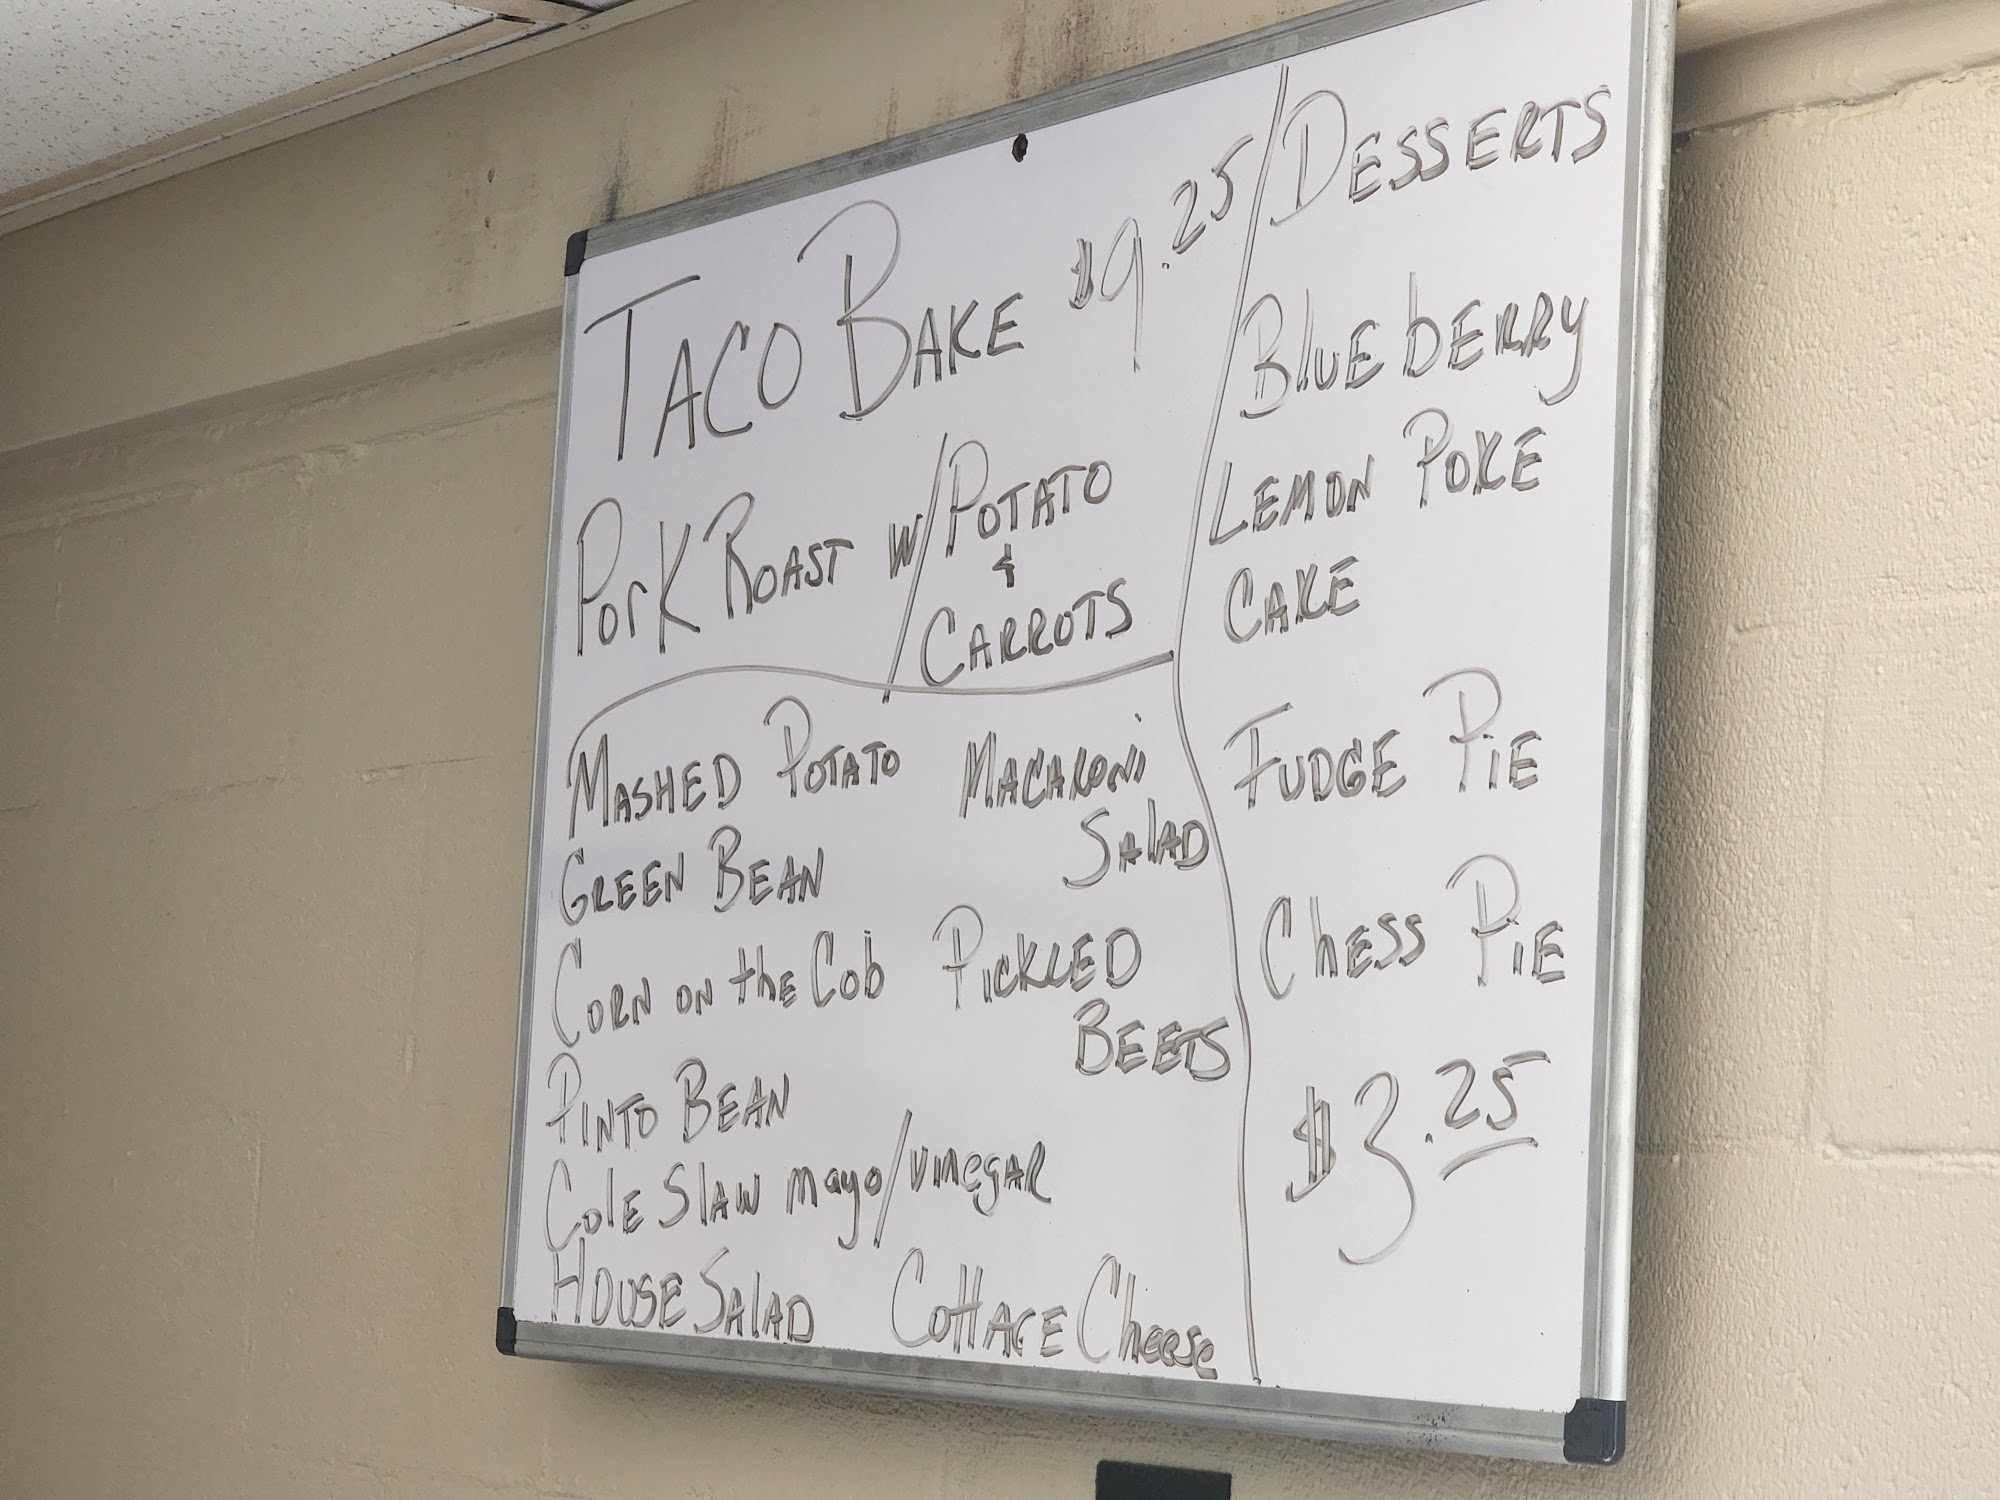 TACO BAKE $9.25
PORK ROAST W/ POTATO
&
CARROTS
MASHED POTATO MACARONI
SALAD
GREEN BEAN
CORN ON the Cob PICKLED
BEETS
PINTO BEAN
ColE SlAW mayo/vinegar
HOUSE SAlAD COttAGE Cheese
DESSERTS
BlUEbERRY
LEMON POKE
CAKE
FUDGE PiE
ChESS PiE
$3.25